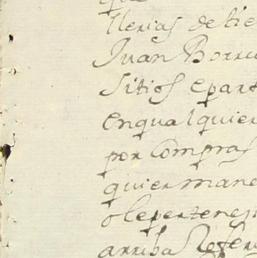 que
llerias de tie
Juan Borru
sitios e part
en qualquier
por compras
quier mane
o le pertenes
arriba Refer